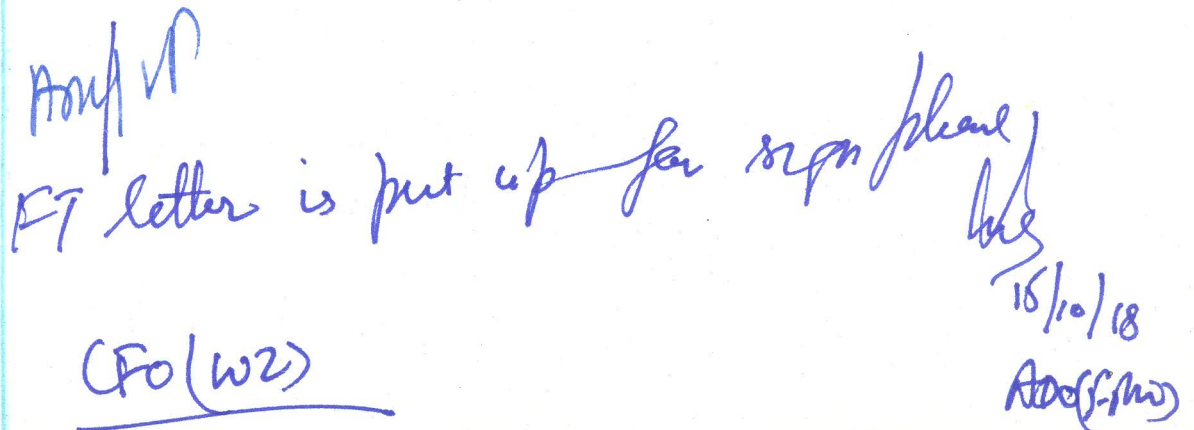 FT letter is put up for sign please
15/10/18
CFO(WZ)